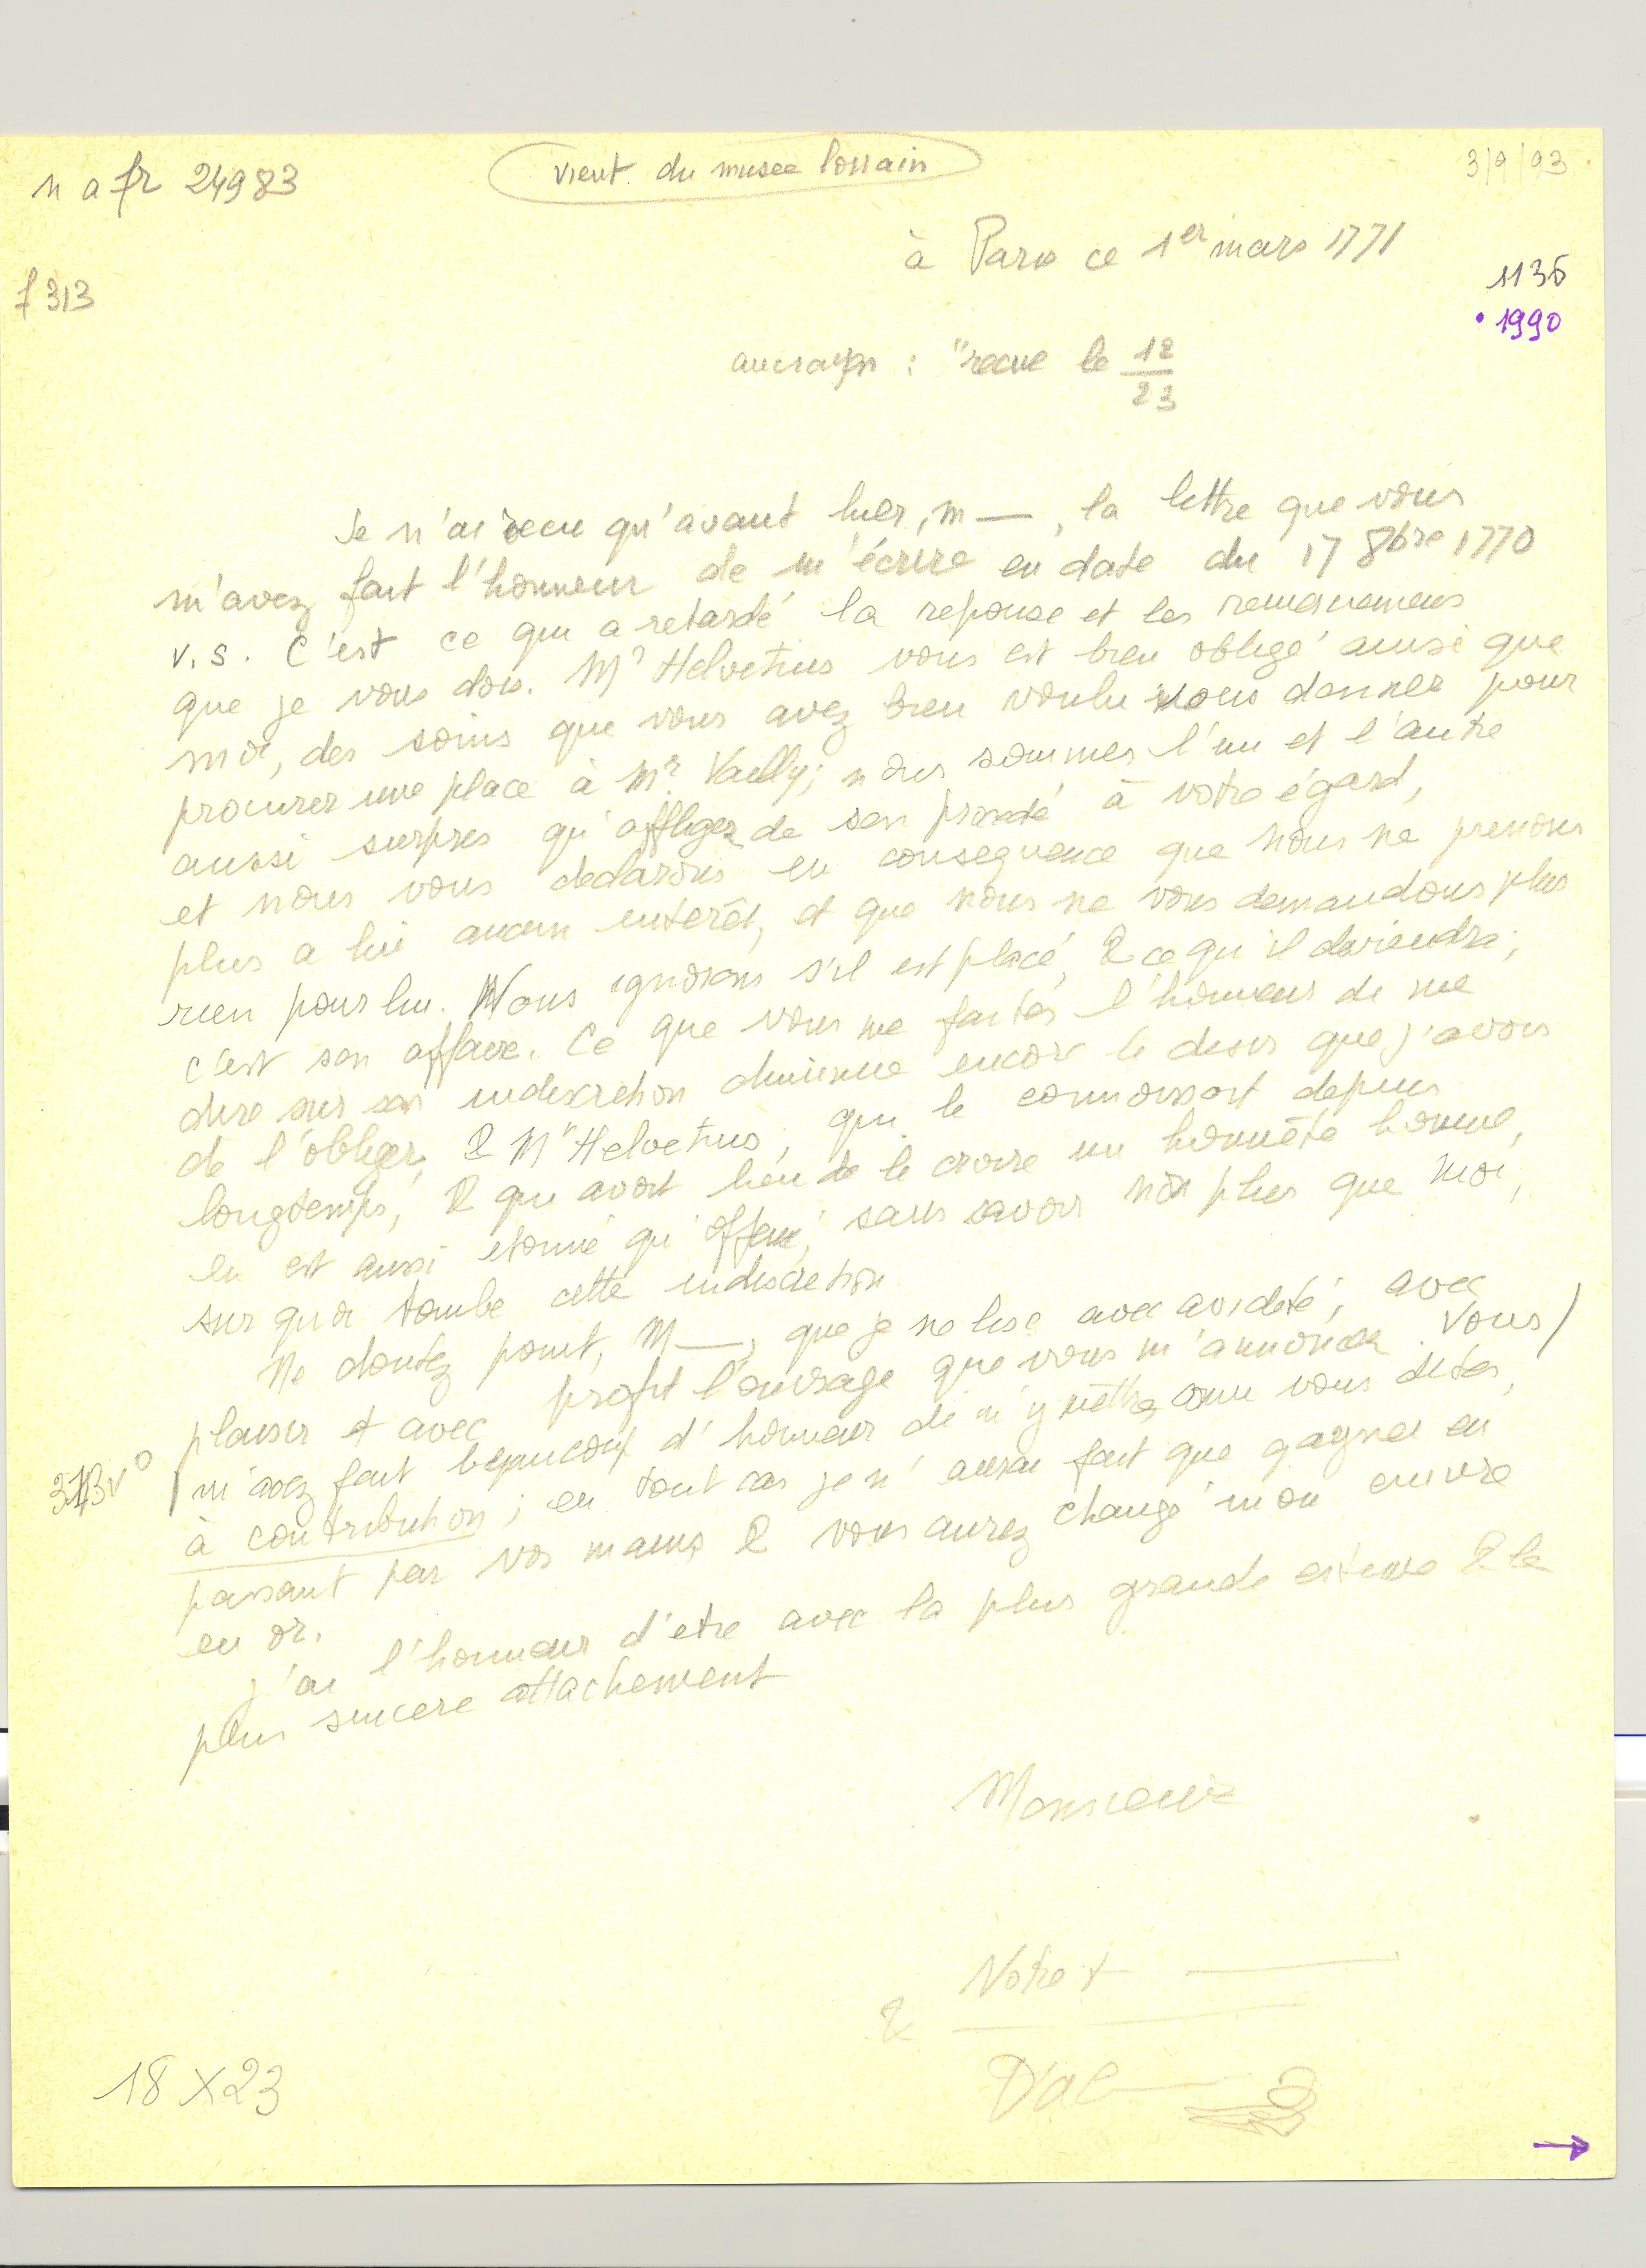 n a fr 24983
vient du musee lorrain
3/9/93
à Paris ce 1er mars 1771
f 313
1136
• 1990
"recue le 12/23
Je n'ai recu qu'avant hier, m—, la lettre que vous
m'avez fait l'honneur de m'écrire en date du 17 8bre 1770
v.s. C'est ce qui a retardé la reponse et les remerciemens
que je vous dois. Mr Helvetius vous est bien obligé ainsi que
moi, des soins que vous avez bien voulu vous donner pour
procurer une place à Mr. Vailly; nous sommes l'un et l'autre
aussi surpris qu'affligez de son procédé à votre égard,
et nous vous declarons en consequence que nous ne prenons
plus a lui aucun interêt, et que nous ne vous demandons plus
rien pour lui. Nous ignorons s'il est placé, & ce qu'il deviendra;
c'est son affaire. Ce que vous me faites l'honneur de me
dire sur son indiscretion diminue encore le desir que j'avois
de l'obliger, & Mr Helvetius, qui le connoissoit depuis
longtemps, & qui avoit lieu de le croire un honnête homme,
en est aussi etonné qu'offensé, sans savoir non plus que moi,
sur quoi tombe cette indiscretion
Ne doutez point, M—, que je ne lise avec avidité, avec
plaisir et avec profit l'ouvrage que vous m'annoncez. Vous /
313 vo / m'avez fait beaucoup d'honneur de m'y mettre, comme vous dites,
à contribution; en tout cas je n'aurai fait que gagner en
passant par vos mains & vous aurez changé mon cuivre
en or.
j'ai l'honneur d'etre avec la plus grande estime & le
plus sincere attachement
Monsieur
Votre t—
& —
D'Al—
18 X 23
→